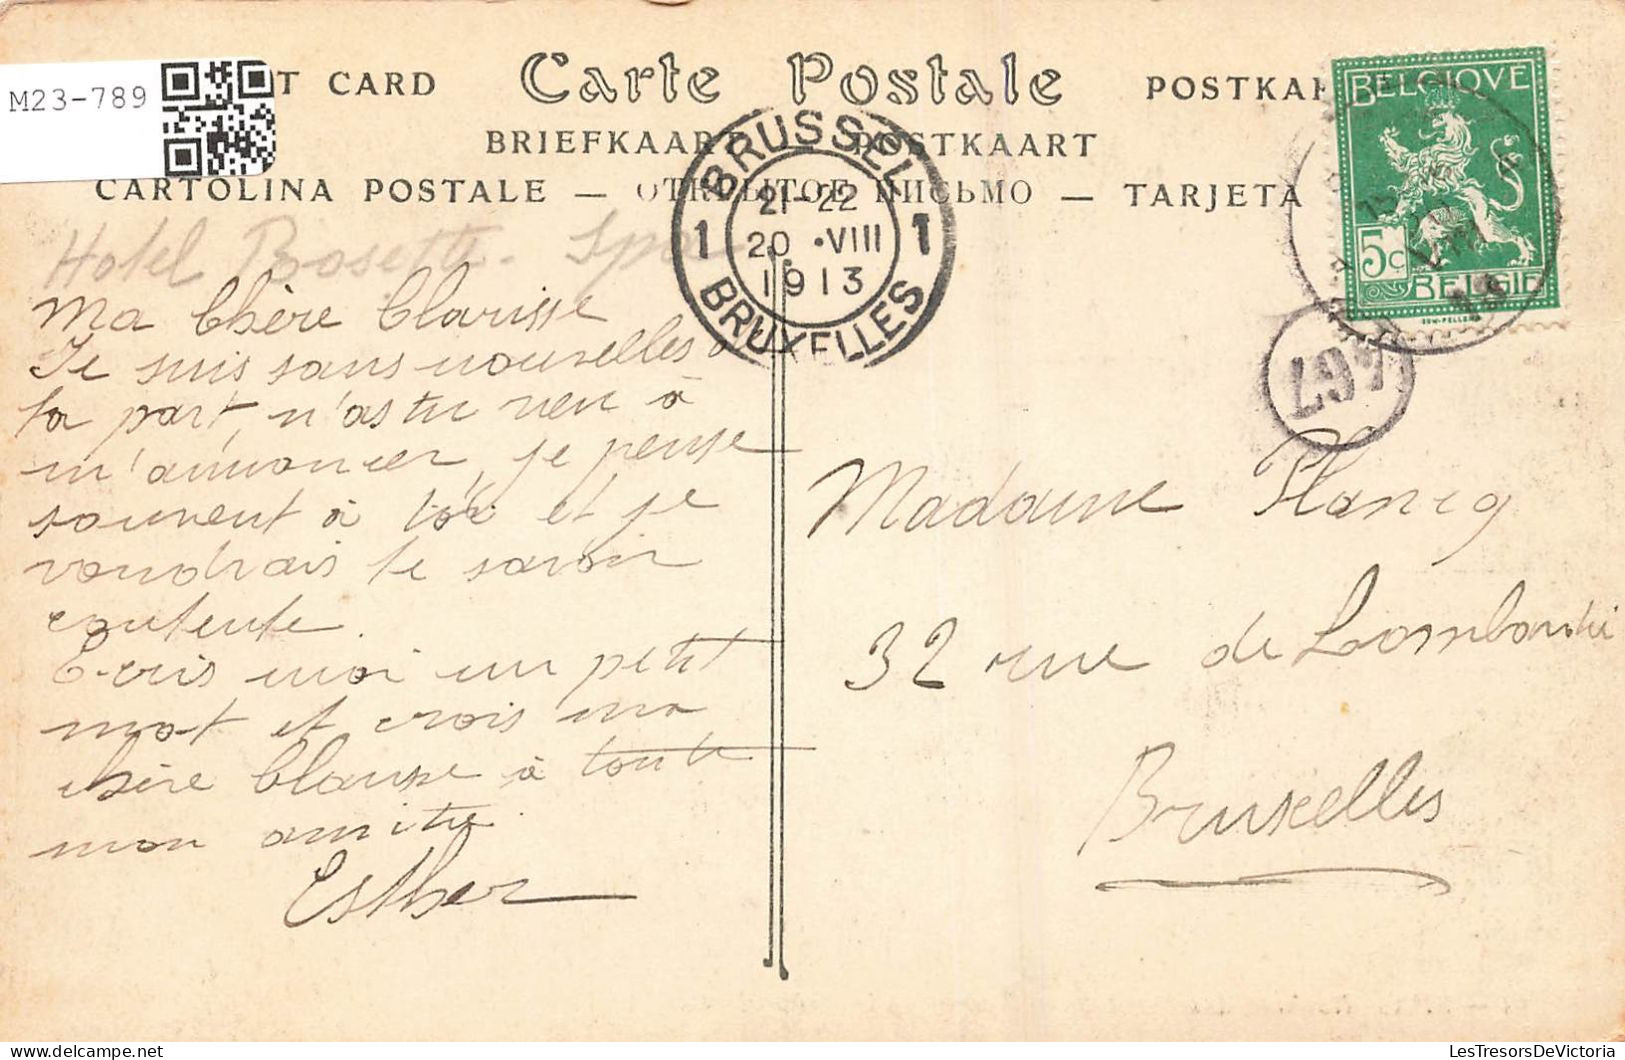 M23-789
T CARD
Carte Postale
POSTKAR
BRIEFKAART
POSTKAART
CARTOLINA POSTALE — ОТКРЫТОЕ ПИСЬМО — TARJETA
BRUSSEL
21-22
1 20 •VIII 1
1913
BRUXELLES
BELGIQUE
5c
BELGIË
Hotel Rosette. Spa
Ma Chère Clarisse
Je suis sans nouvelles d
ta part, n'as tu rien à
m'annoncer, je pense
souvent à toi et je
voudrais te savoir
contente.
Ecris moi un petit
mot et crois ma
chère Clarisse à toute
mon amitié.
Esther
Madame
32 rue de
Bruxelles
LesTresorsDeVictoria